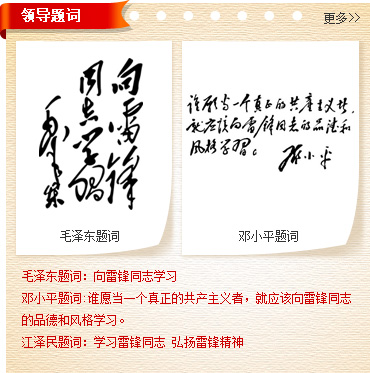 领导题词
更多>>
向雷锋
同志学习
毛泽东
谁愿当一个真正的共产主义者,
就应该向雷锋同志的品德和
风格学习。
邓小平
毛泽东题词
邓小平题词
毛泽东题词：向雷锋同志学习
邓小平题词:谁愿当一个真正的共产主义者，就应该向雷锋同志
的品德和风格学习。
江泽民题词：学习雷锋同志 弘扬雷锋精神